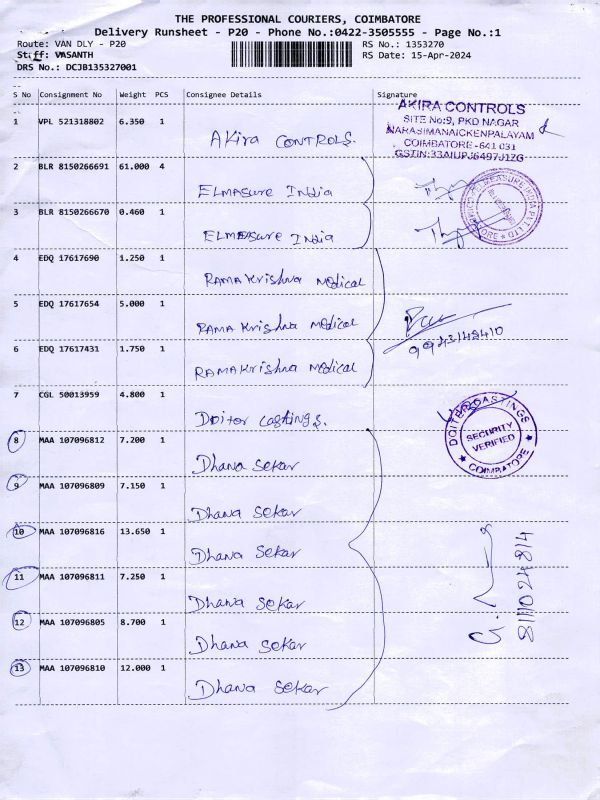 THE PROFESSIONAL COURIERS, COIMBATORE
Delivery Runsheet - P20 - Phone No.:0422-3505555 - Page No.:1
Route: VAN DLY - P20
RS No.: 1353270
Staff: VASANTH
RS Date: 15-Apr-2024
DRS No.: DCJB135327001
S No Consignment No Weight PCS Consignee Details Signature
1 VPL 521318802 6.350 1 AKira CONTROLS.
AKIRA CONTROLS
SITE No:9, PKD NAGAR
NARASIMANAICKENPALAYAM
COIMBATORE - 641 031
2 BLR 8150266691 61.000 4 ELMEASURE India
3 BLR 8150266670 0.460 1 ELMEASURE India
4 EDQ 17617690 1.250 1 RAMA Krishna Medical
5 EDQ 17617654 5.000 1 RAMA Krishna Medical
6 EDQ 17617431 1.750 1 RAMA Krishna Medical
7 CGL 50013959 4.800 1 Doitor castings.
SECURITY
VERIFIED
COIMBATORE
8 MAA 107096812 7.200 1 Dhana Sekar
9 MAA 107096809 7.150 1 Dhana Sekar
10 MAA 107096816 13.650 1 Dhana Sekar
11 MAA 107096811 7.250 1 Dhana Sekar
12 MAA 107096805 8.700 1 Dhana Sekar
13 MAA 107096810 12.000 1 Dhana Sekar